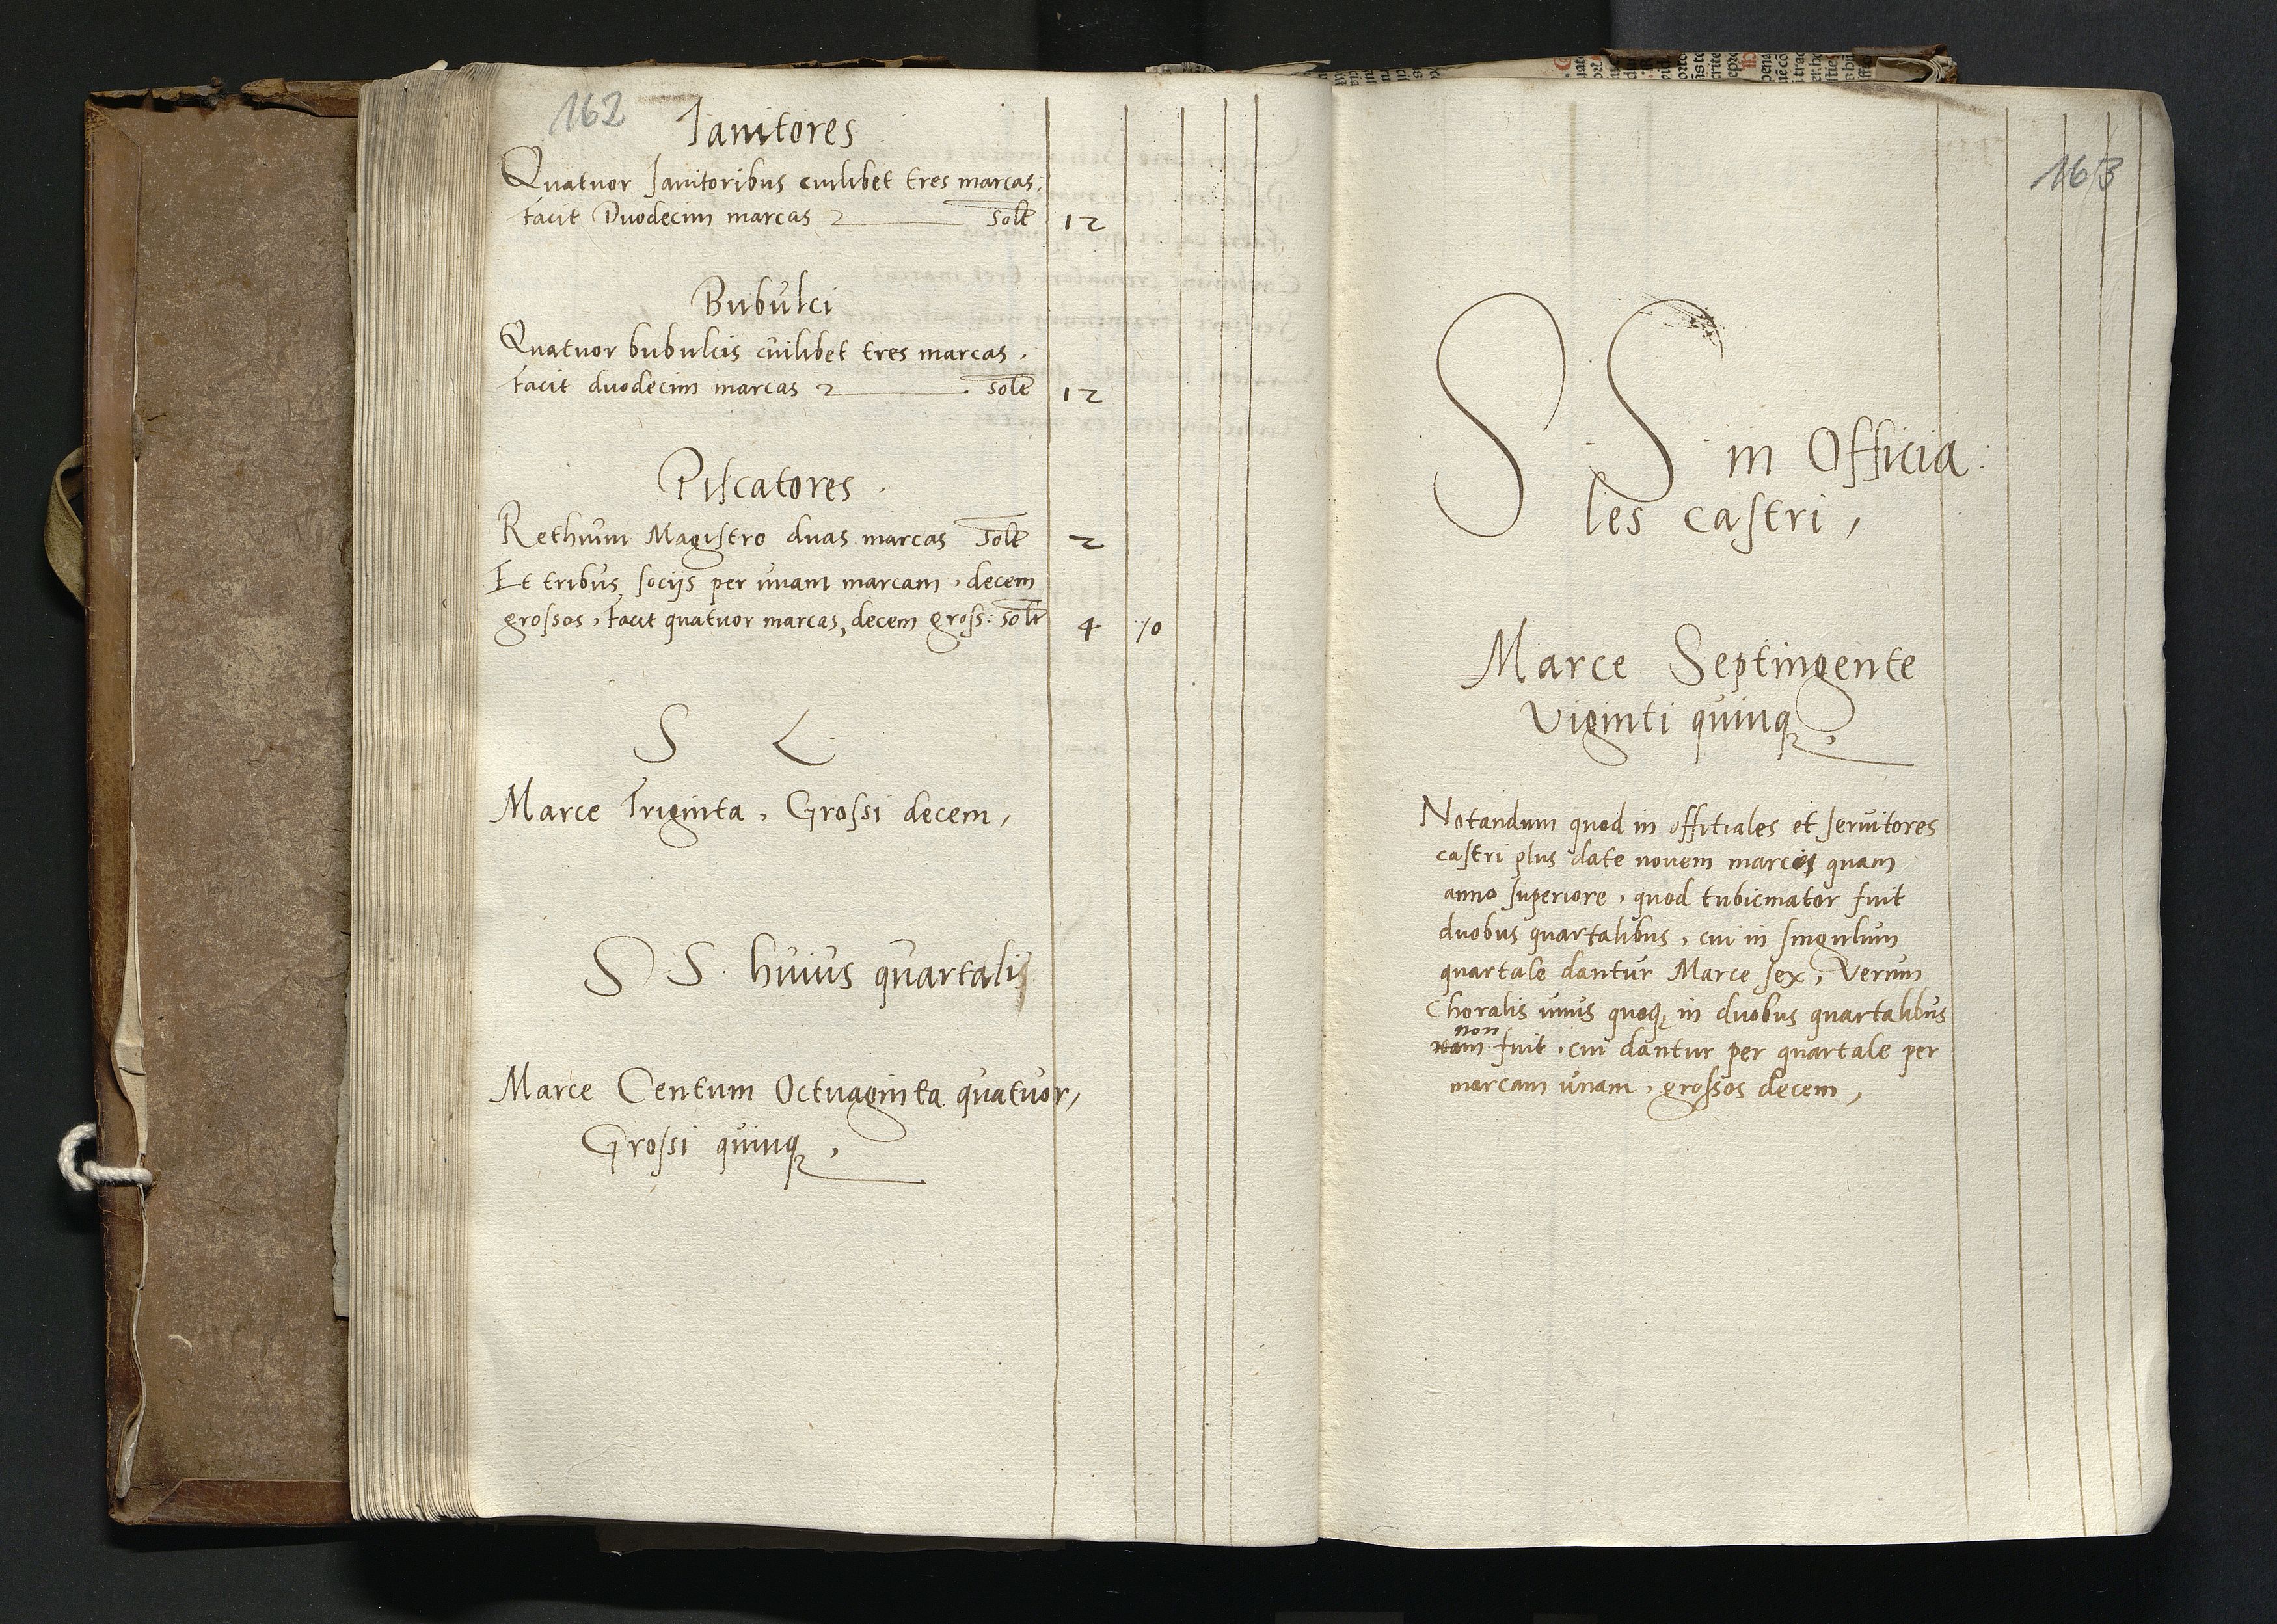 162
Ianitores
Quatuor Ianitoribus cuilibet tres marcas,
facit Duodecim marcas solt 12
Bubulci
Quatuor bubulcis cuilibet tres marcas,
facit duodecim marcas solt 12
Piscatores.
Rethium Magistro duas marcas solt 2
Et tribus sociis per unam marcam, decem
grossos, facit quatuor marcas, decem gross: solt 4 10
S L
Marce Triginta, Grossi decem,
S S. huius quartalis
Marce Centum Octuaginta quatuor,
Grossi quinq,
163
S. S. in Officia:
les castri,
Marce Septingente
Viginti quinq,
Notandum quod in offitiales et seruitores
castri plus date nouem marcis quam
anno superiore, quod tubicinator fuit
duobus quartalibus, cui in singulum
quartale dantur Marce sex, Verum
Choralis unus quoq in duobus quartalibus
non
fuit, cui dantur per quartale per
marcam unam, grossos decem,